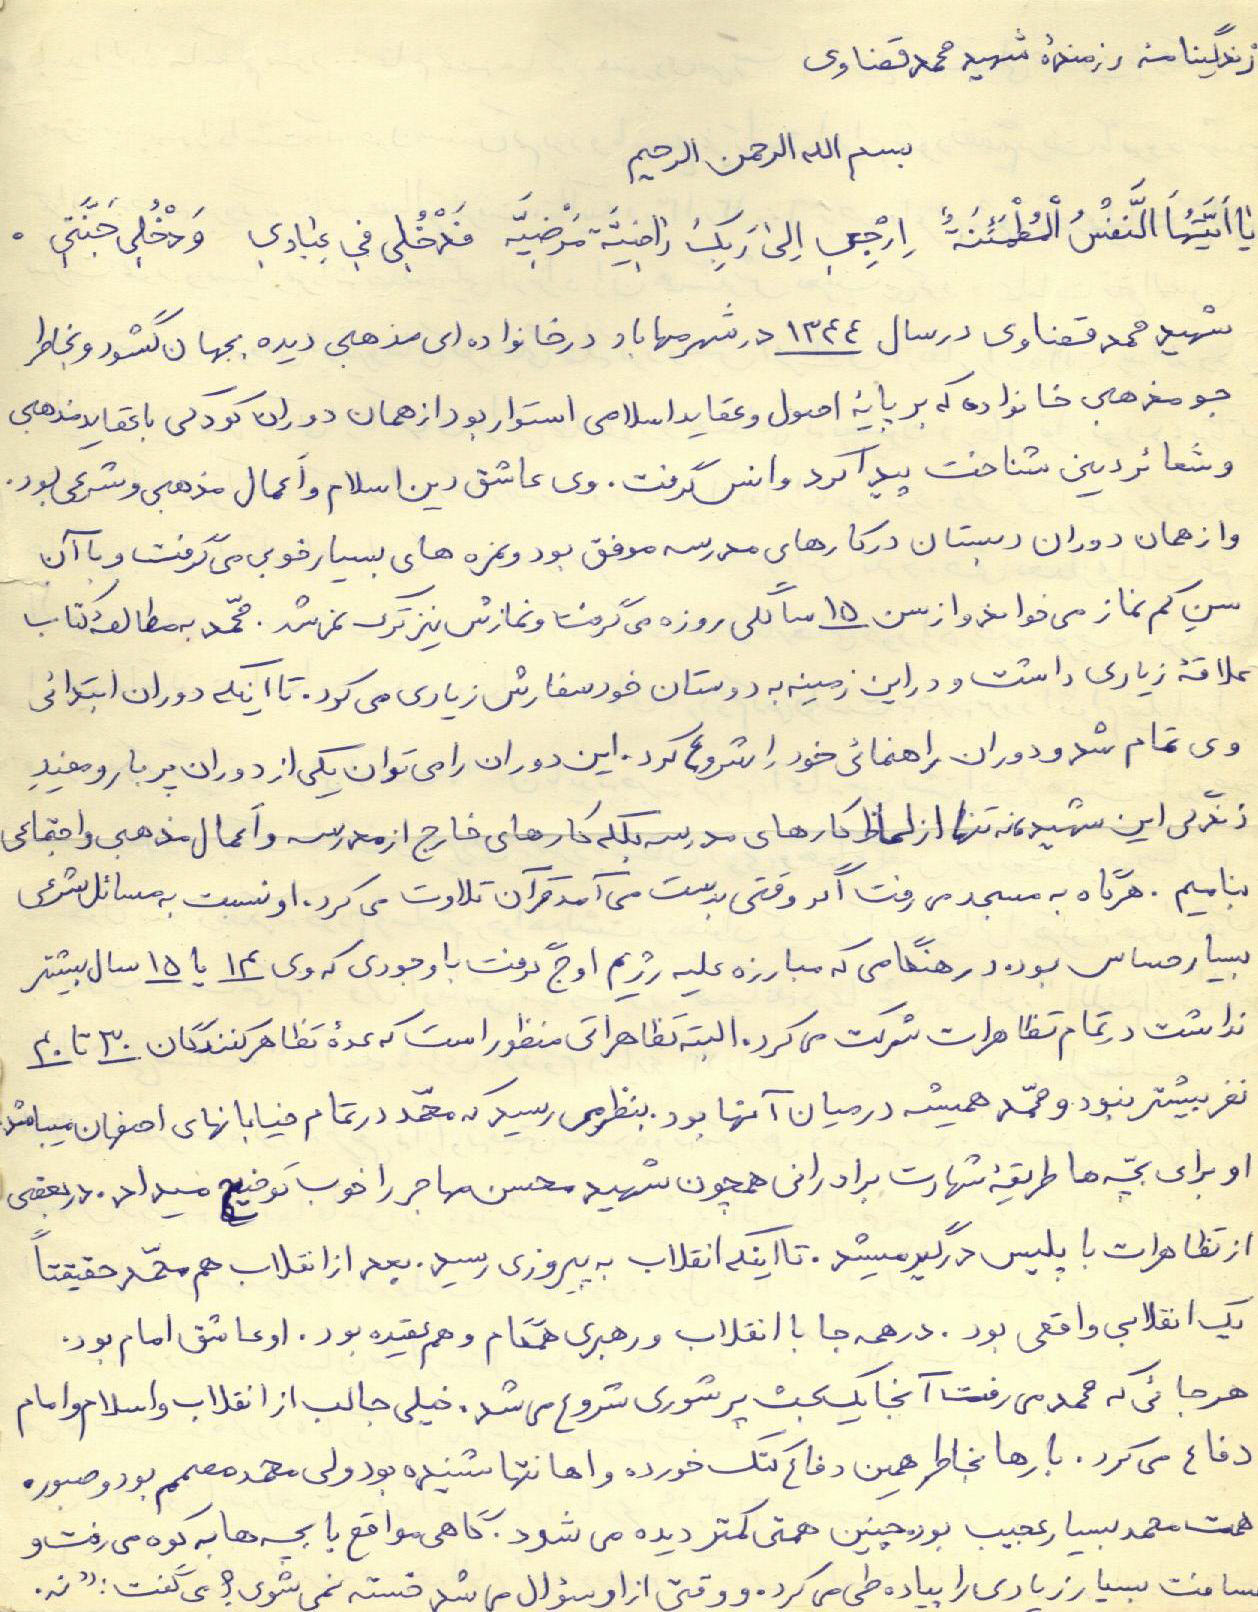 زندگینامه رزمندهٔ شهید محمد قضاوی
بسم الله الرحمن الرحیم
یا اَیَّتُهَا النَّفْسُ الْمُطْمَئِنَةُ اِرْجِعِی اِلیٰ رَبِکِ رٰاضِیَّةً مَرْضِیَّه فَدْخُلِی فی عِبٰادی وَدْخُلی جَنَّتی .
شهید محمد قضاوی در سال ١٣٤٤ در شهر مهاباد در خانواده‌ای مذهبی دیده بجهان گشود و بخاطر
جو مذهبی خانواده که بر پایهٔ اصول و عقاید اسلامی استوار بود از همان دوران کودکی با عقاید مذهبی
و شعائر دینی شناخت پیدا کرد و انس گرفت . وی عاشق دین اسلام و اَعمال مذهبی و شرعی بود .
و از همان دوران دبستان در کارهای مدرسه موفق بود و نمره های بسیار خوبی می گرفت و با آن
سنِ کم نماز می خواند و از سن ۱۵ سالگی روزه می گرفت و نمازش نیز ترک نمی شد . محمّد به مطالعهٔ کتاب
علاقهٔ زیادی داشت و در این زمینه به دوستان خود سفارش زیادی می کرد . تا اینکه دوران ابتدائی
وی تمام شد و دوران راهنمائی خود را شروع کرد . این دوران را می توان یکی از دوران پربار و مفیدِ
زندگی این شهید نه تنها از لحاظ کارهای مدرسه بلکه کارهای خارج از مدرسه و اَعمال مذهبی و اجتماعی
بنامیم . هرگاه به مسجد می رفت اگر وقتی بدست می آمد قرآن تلاوت می کرد . او نسبت به مسائل شرعی
بسیار حساس بود . در هنگامی که مبارزه علیه رژیم اوج گرفت با وجودی که وی ۱۴ یا ۱۵ سال بیشتر
نداشت در تمام تظاهرات شرکت می کرد . البته تظاهراتی منظور است که عدهٔ تظاهر کنندگان ۳۰ تا ۴۰
نفر بیشتر نبود و محمّد همیشه در میان آنها بود . بنظر می رسید که محمّد در تمام خیابانهای اصفهان میباشد
او برای بچّه ها طریقهٔ شهادت برادرانی همچون شهید محسن مهاجر را خوب توضیح میداد . در بعضی
از تظاهرات با پلیس درگیر میشد . تا اینکه انقلاب به پیروزی رسید . بعد از انقلاب هم محمّد حقیقتاً
یک انقلابی واقعی بود . در همه جا با انقلاب و رهبری همگام و هم عقیده بود . او عاشق امام بود .
هر جائی که محمد می رفت آنجا یک بحث پر شوری شروع می شد . خیلی جالب از انقلاب و اسلام و امام
دفاع می کرد . بارها بخاطر همین دفاع کتک خورده و اهانتها شنیده بود ولی محمد مصمم بود و صبور .
همت محمد بسیار عجیب بود چنین همتی کمتر دیده می شود . گاهی مواقع با بچه ها به کوه می رفت و
مسافت بسیار زیادی را پیاده طی می کرد . و وقتی از او سؤال می شد خسته نمی شوی ؟ می گفت : « نه .